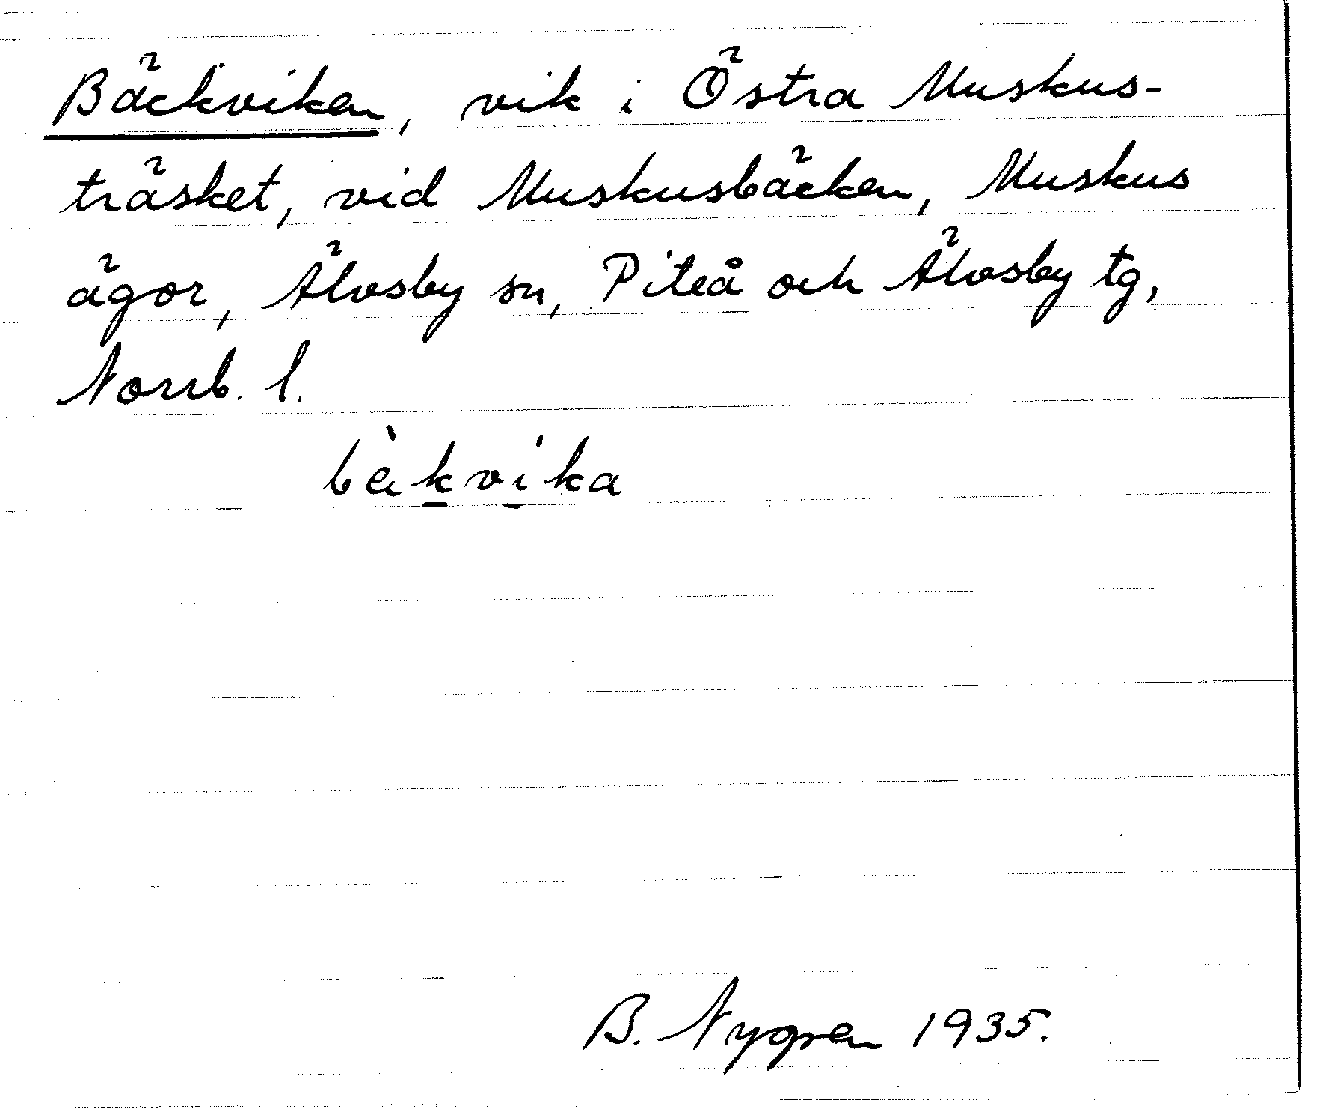 Bäckviken, vik i Östra Muskus-
träsket, vid Muskusbäcken, Muskus
ägor, Älvsby sn, Piteå och Älvsby tg,
Norrb. l.
bèkvíka
B. Nygren 1935.